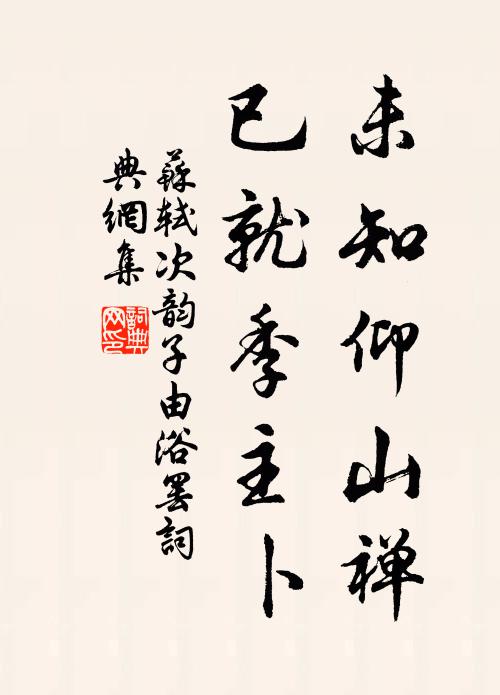 未知仰山禅
已就季主卜
蘇軾次韵子由浴罢詞
典網集
詞典
网印